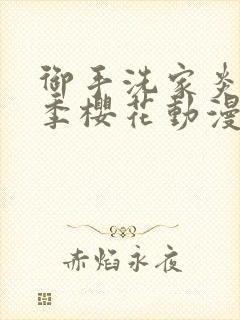 御手洗家炎
季櫻花動漫
赤焰永夜